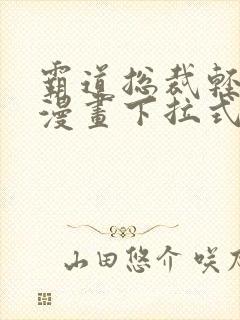 霸道总裁輕
漫畫下拉式
山田悠介 咲